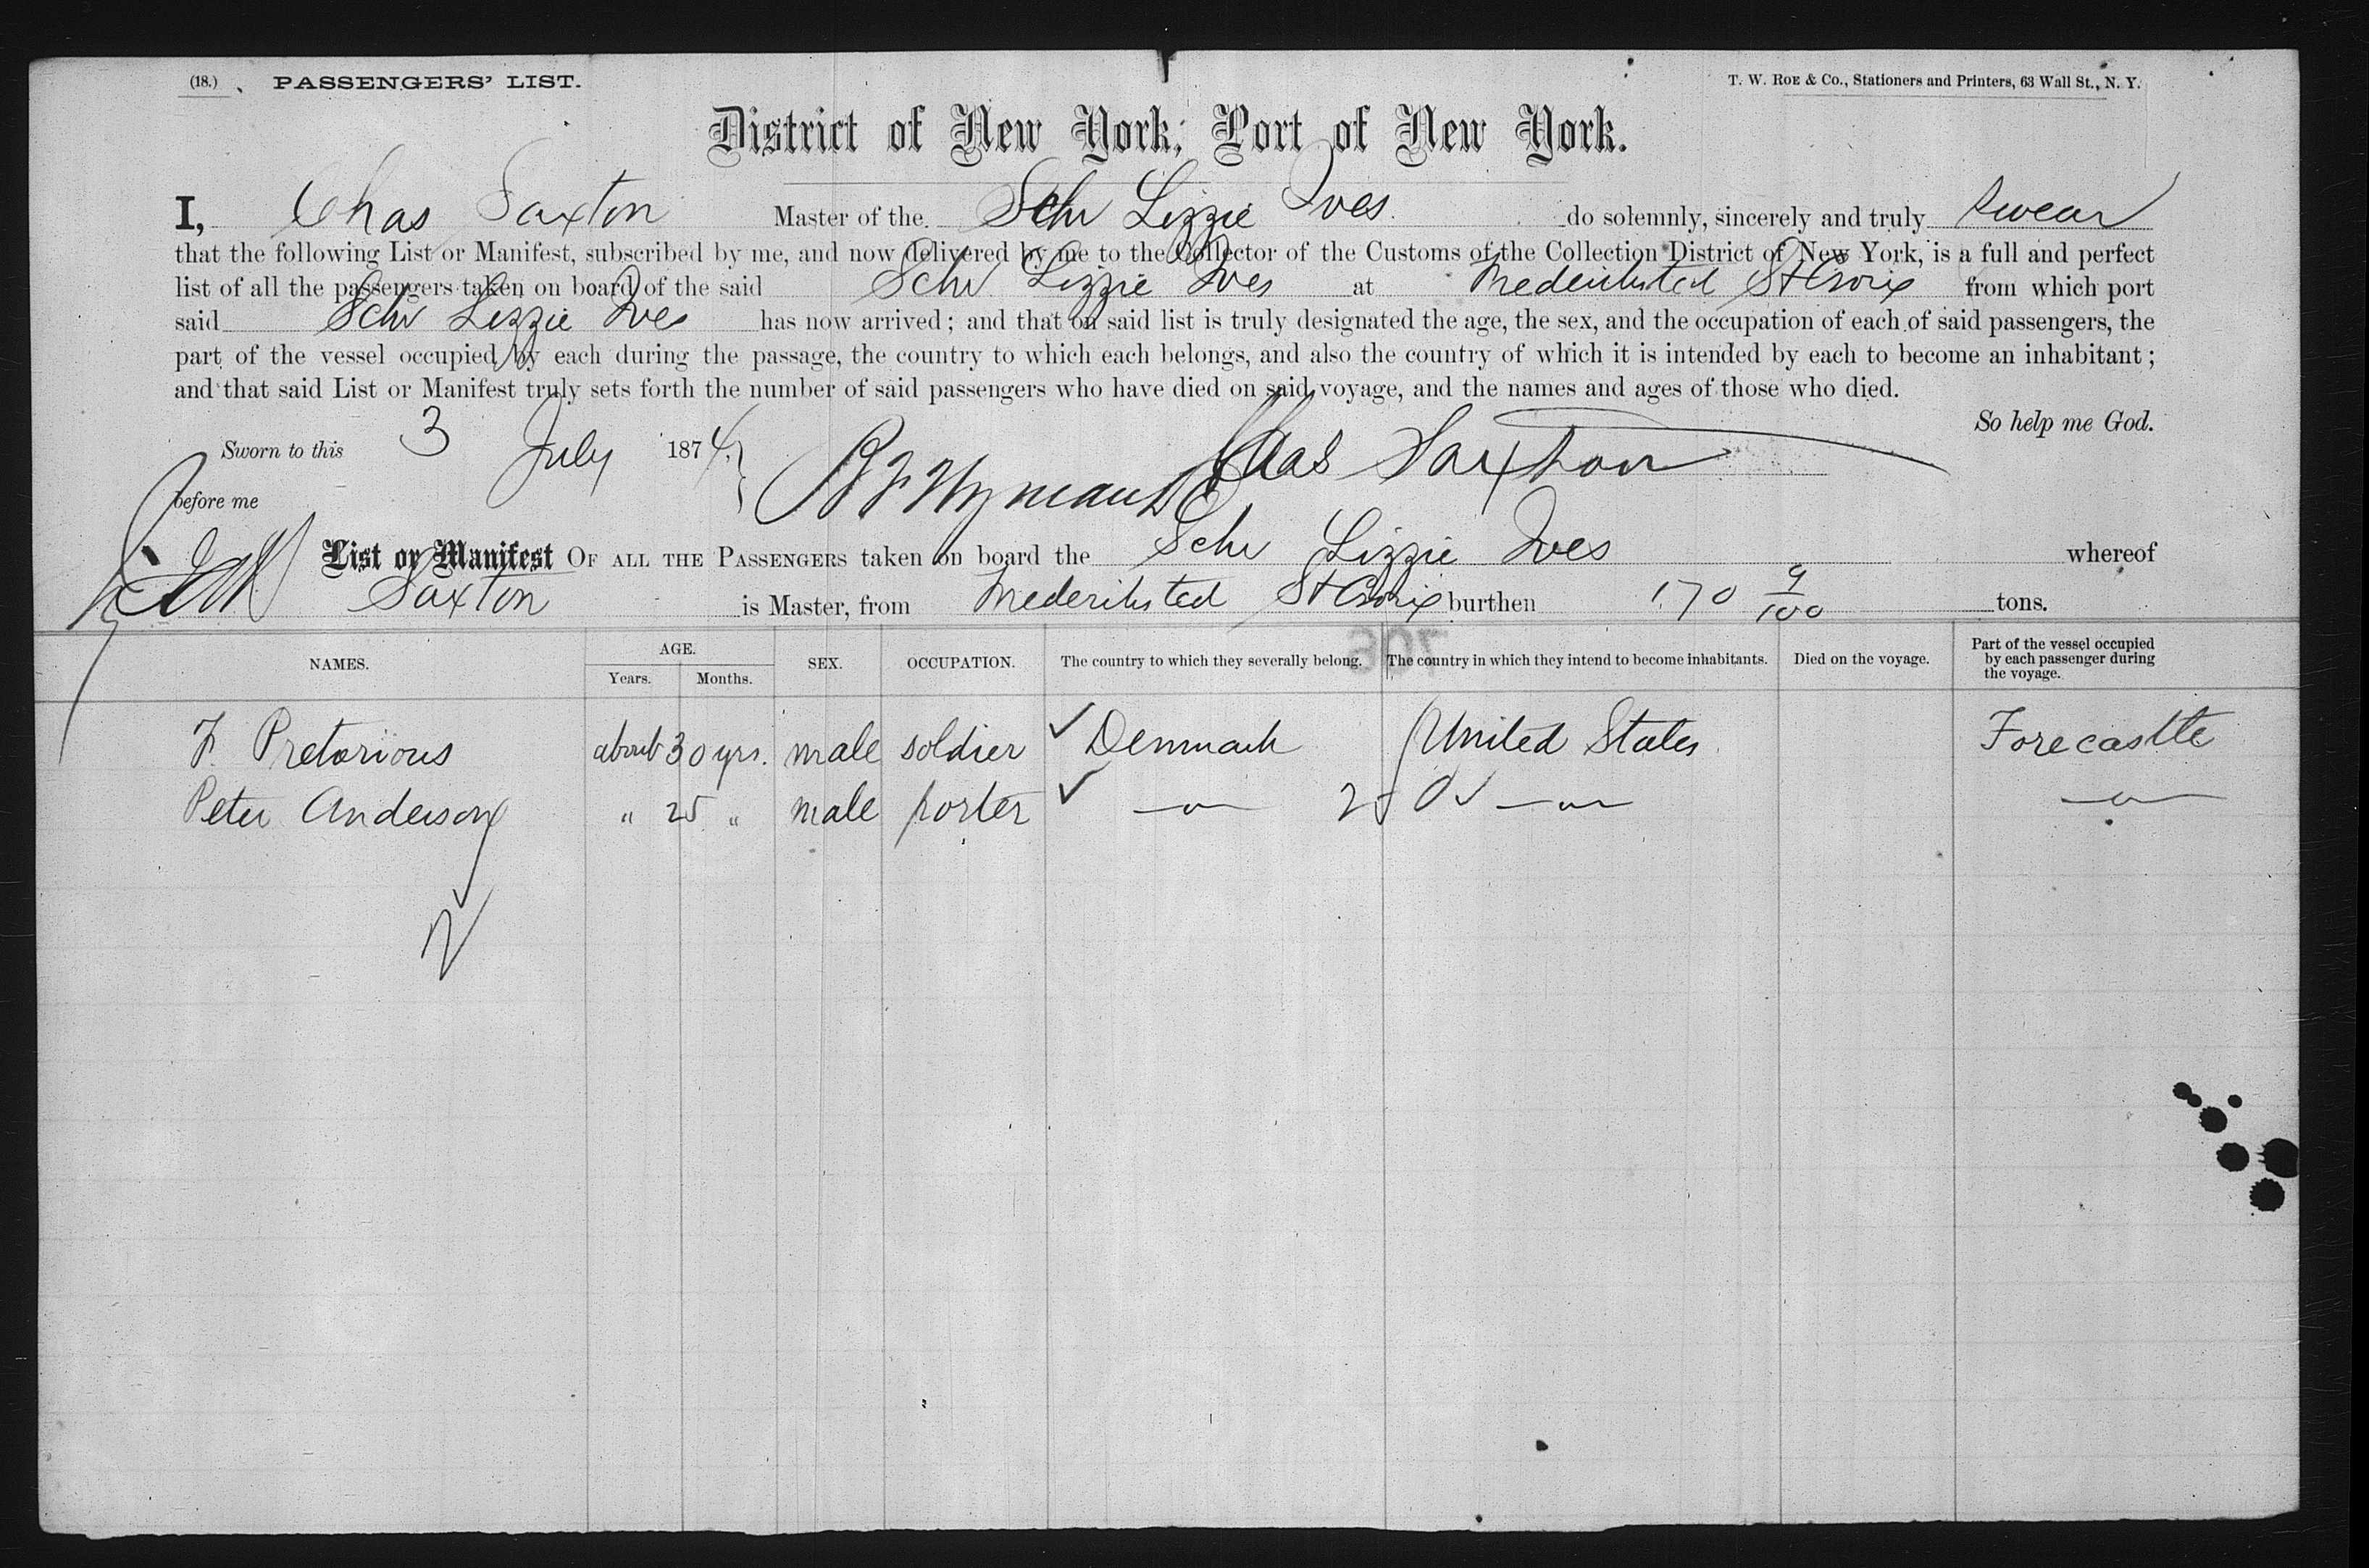 (18.) PASSENGERS' LIST. T. W. ROE & Co., Stationers and Printers, 63 Wall St., N. Y.
District of New York, Port of New York.
I, Chas Saxton Master of the Schr Lizzie Ives do solemnly, sincerely and truly swear
that the following List or Manifest, subscribed by me, and now delivered by me to the Collector of the Customs of the Collection District of New York, is a full and perfect
list of all the passengers taken on board of the said Schr Lizzie Ives at Frederiksted St Croix from which port
said Schr Lizzie Ives has now arrived; and that on said list is truly designated the age, the sex, and the occupation of each of said passengers, the
part of the vessel occupied by each during the passage, the country to which each belongs, and also the country of which it is intended by each to become an inhabitant;
and that said List or Manifest truly sets forth the number of said passengers who have died on said voyage, and the names and ages of those who died.
So help me God.
Sworn to this 3 July 1874 Chas Saxton
before me
List or Manifest OF ALL THE PASSENGERS taken on board the Schr Lizzie Ives whereof
Saxton is Master, from Frederiksted St Croix burthen 170 9/100 tons.
NAMES. AGE. Years. Months. SEX. OCCUPATION. The country to which they severally belong. The country in which they intend to become inhabitants. Died on the voyage. Part of the vessel occupied by each passenger during the voyage.
F. Pretorious about 30 yrs. male soldier ✓ Denmark United States Forecastle
Peter Anderson " 25 " male porter ✓ —"— —"— —"—
2